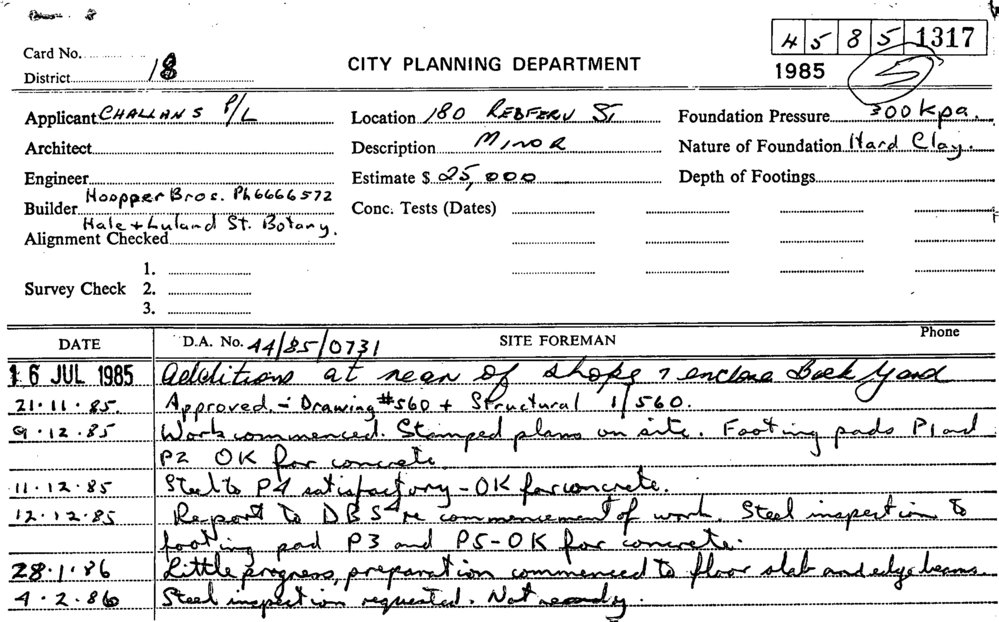 45 85 1317
Card No.
District 18
CITY PLANNING DEPARTMENT
1985 5
Applicant CHALLANS P/L
Location 180 REDFERN ST
Foundation Pressure 300 kpa.
Architect
Description MINOR
Nature of Foundation Hard Clay.
Engineer
Estimate $ 25,000
Depth of Footings
Hoopper Bros. Ph 6666572
Builder
Conc. Tests (Dates)
Hale + Luland St. Botany.
Alignment Checked
1.
Survey Check 2.
3.
DATE D.A. No. 44/85/0731 SITE FOREMAN Phone
16 JUL 1985 Additions at rear of shops & enclose Back Yard
21.11.85. Approved. - Drawing #560 + Structural 1/560.
9.12.85 Work commenced. Stamped plans on site. Footing pads P1 and
P2 OK for concrete.
11.12.85 Steel to P4 satisfactory - OK for concrete.
12.12.85 Report to DBS re commencement of work. Steel inspection to
footing pad P3 and P5 - OK for concrete.
28.1.86 Little progress, preparation commenced to floor slab and edge beams.
4.2.86 Steel inspection requested. Not ready.